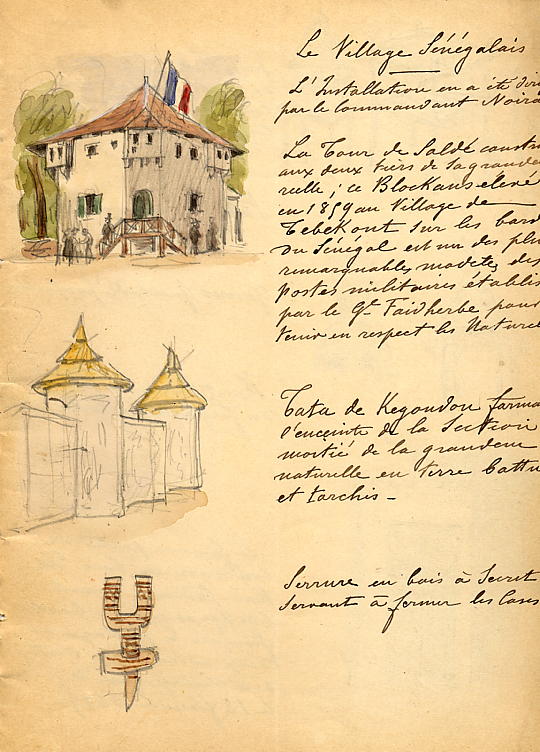 Le Village Sénégalais
L'Installation en a été
par le Commandant Noiro
La Tour de Saldé constr
aux deux tiers de sa grande
relle ; ce Blockaus élevé
en 1859 au Village de
Tebekout sur les bord
du Sénégal est un des plu
remarquables modeles des
postes militaires établis
par le Gal Faidherbe pour
tenir en respect les Nature
Tata de Kegoudou forma
l'enceinte de la Section
moitié de la grandeur
naturelle en terre battu
et torchis -
Serrure en bois à Secret
Servant à fermer les Cases